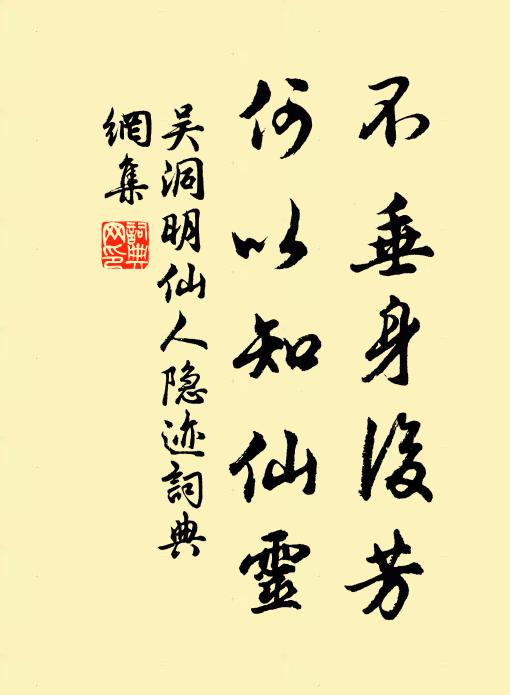 不垂身後芳
何以知仙靈
吴洞明仙人隐迹詞典
網集
詞典
网印